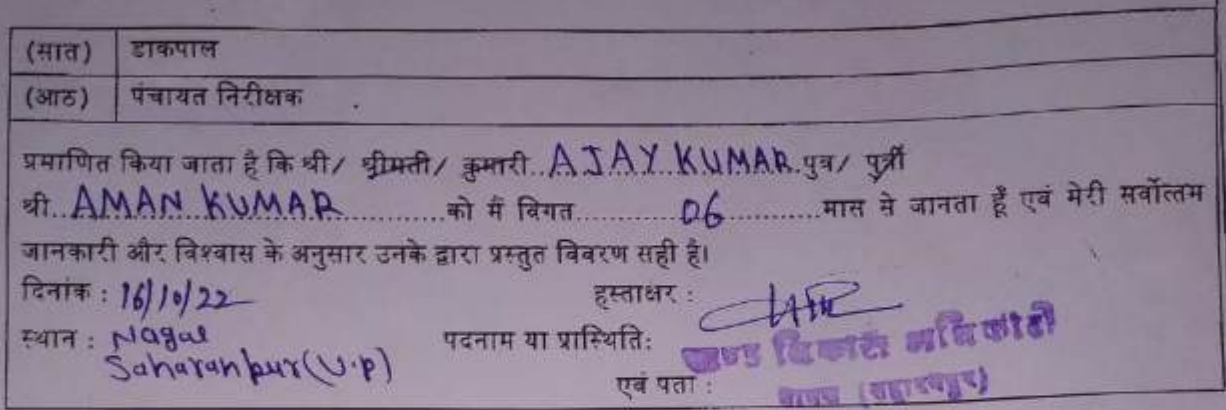 (सात) डाकपाल
(आठ) पंचायत निरीक्षक
प्रमाणित किया जाता है कि श्री/ श्रीमती/ कुमारी..AJAY KUMAR.पुत्र/ पुत्री
श्री..AMAN KUMAR............को मैं विगत............06............मास से जानता हूँ एवं मेरी सर्वोत्तम
जानकारी और विश्वास के अनुसार उनके द्वारा प्रस्तुत विवरण सही है।
दिनांक : 16/10/22 हस्ताक्षर :
स्थान : Nagal पदनाम या प्रास्थिति: खण्ड विकास अधिकारी
Saharanpur(U.P) एवं पता : नागल (सहारनपुर)